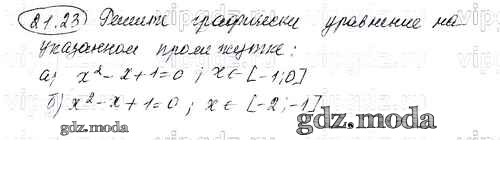 21.23 Решите графически уравнение на
указанном промежутке:
а) x² - x + 1 = 0 ; x ∈ [-1; 0]
б) x² - x + 1 = 0 ; x ∈ [-2; -1]
gdz.moda
gdz.moda